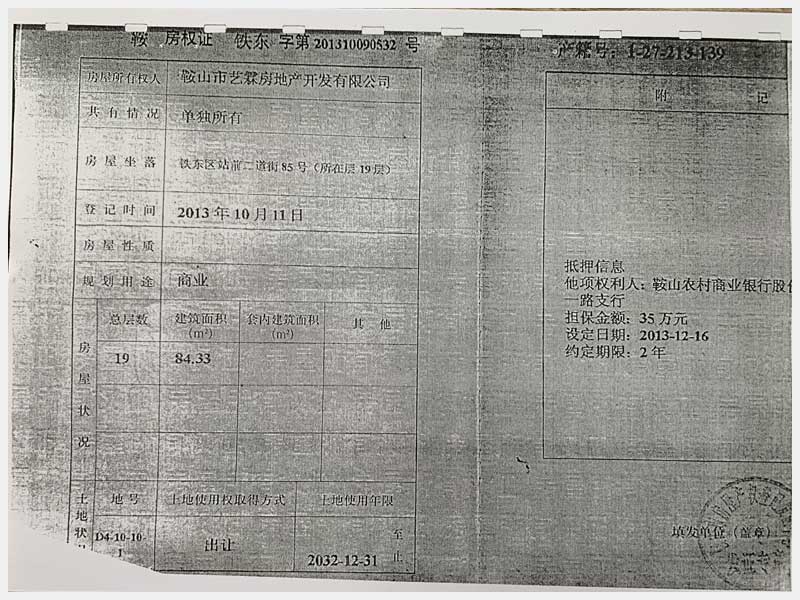 鞍 房权证 铁东 字第 201310090532 号
房屋所有权人 鞍山市艺霖房地产开发有限公司
共有情况 单独所有
房屋坐落 铁东区站前二道街85号（所在层19层）
登记时间 2013年10月11日
房屋性质
规划用途 商业
房屋状况
总层数 建筑面积(m²) 套内建筑面积(m²) 其他
19 84.33
土地状
地号 土地使用权取得方式 土地使用年限
D4-10-10-1 出让 至 2032-12-31 止
产籍号：1-27-213-139
附 记
抵押信息
他项权利人：鞍山农村商业银行股份
一路支行
担保金额：35万元
设定日期：2013-12-16
约定期限：2年
填发单位（盖章）